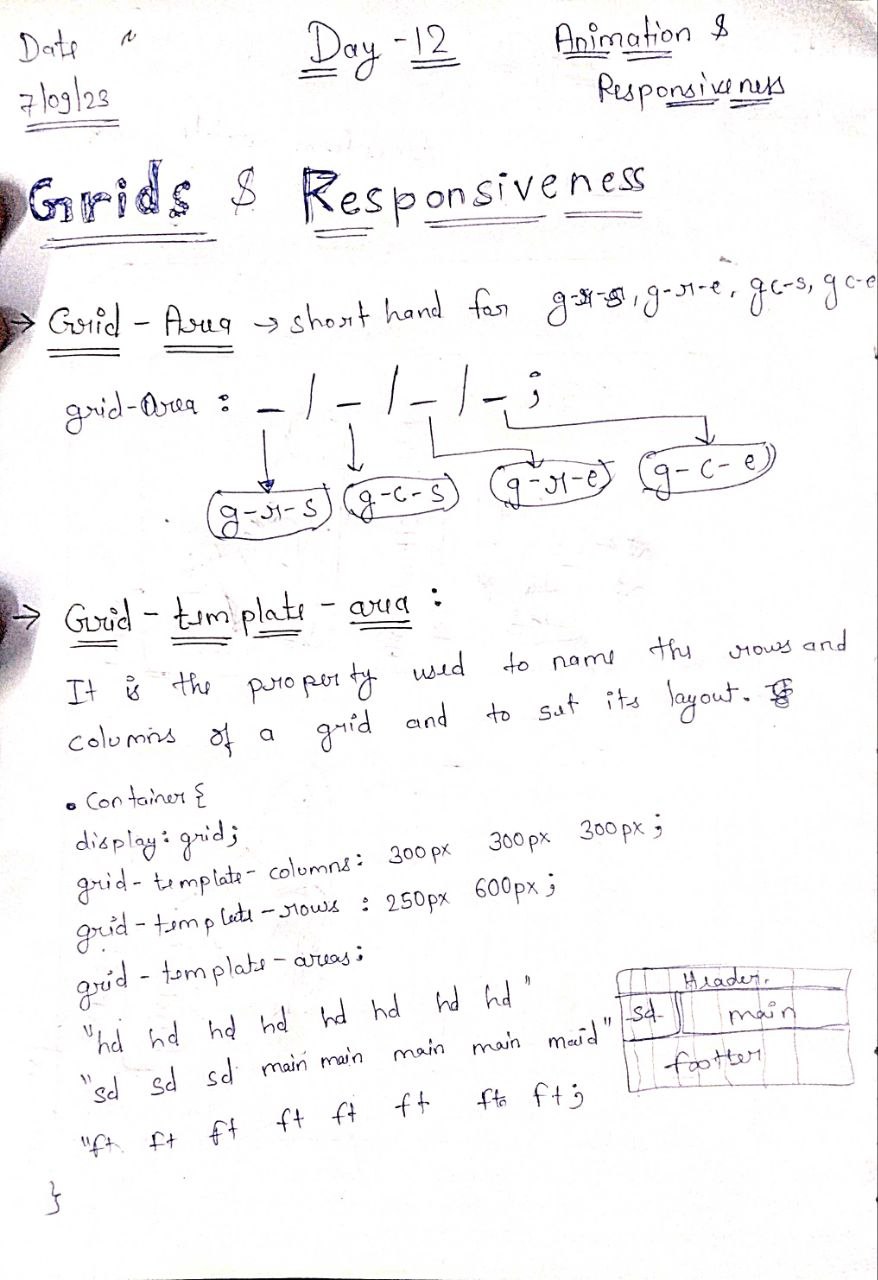 Date ~ Day-12 Animation &
7/09/23 Responsiveness
Grids & Responsiveness
→ Grid - Area → short hand for g-r-s, g-r-e, gc-s, gc-e
grid-area : _ / _ / _ / _ ;
g-r-s g-c-s g-r-e g-c-e
→ Grid - template - area :
It is the property used to name the rows and
columns of a grid and to set its layout.
• Container {
display: grid;
grid-template-columns: 300px 300px 300px;
grid-template-rows : 250px 600px;
grid-template-areas;
"hd hd hd hd hd hd hd hd"
"sd sd sd main main main main maid"
"ft ft ft ft ft ft ft ft;
}
Header.
sd main
footter